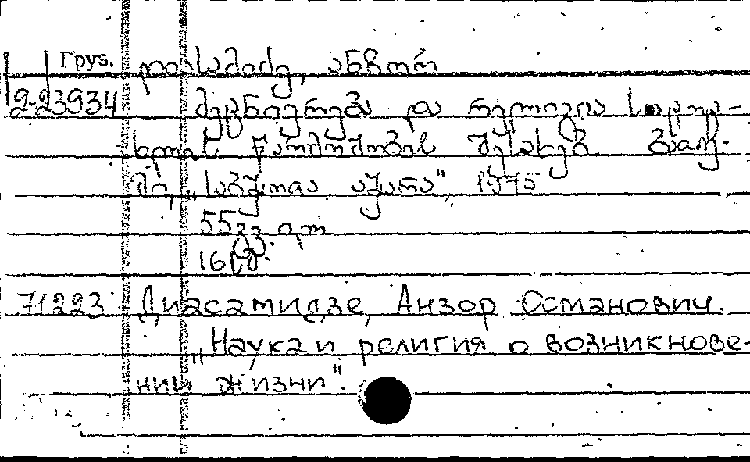 Груз. დიასამიძე, ანზორ
2-23934 მეცნიერება და რელიგია სიცოც-
ხლის წარმოშობის შესახებ ბათუ-
მი, „საბჭოთა აჭარა", 1975
55გვ.
16
71223 Диасамидзе, Анзор Османович.
„Наука и религия о возникнове-
нии жизни".